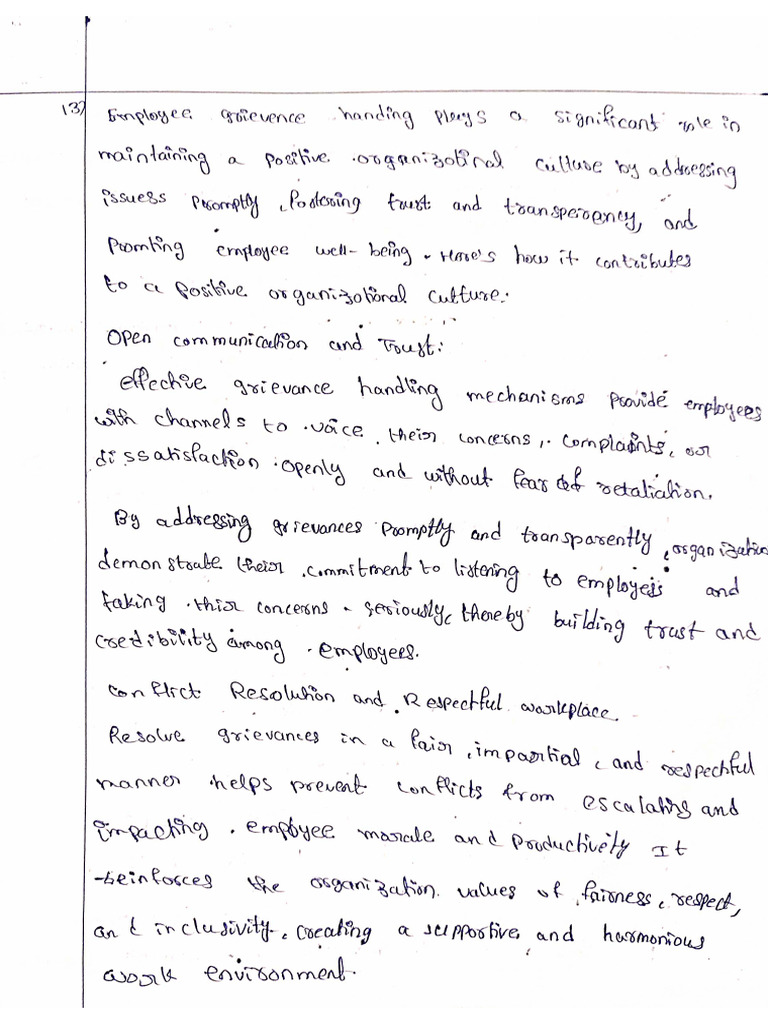 13) Employee grievence handing plays a significant role in
maintaining a positive organizational culture by addressing
issuess promptly, fostering trust and transperency, and
Promting employee well-being. Here's how it contributes
to a positive organizational culture.
Open communication and Trust:
effective grievance handling mechanisms provide employees
with channels to voice their concerns, complaints, or
dissatisfaction openly and without fear of retaliation.
By addressing grievances promptly and transparently, organization
demonstrate their commitment to listening to employees and
taking thir concerns seriously, thereby building trust and
credibility among employees.
Conflict Resolution and Respectful workplace.
Resolve grievances in a fair, impartial, and respectful
manner helps prevent conflicts from escalating and
impacting employee morale and productivity It
reinforces the organization values of fairness, respect,
and inclusivity, creating a supportive and harmonious
work environment.